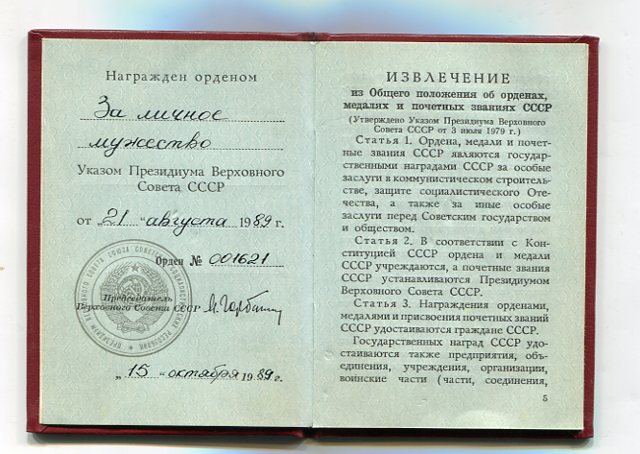 Награжден орденом
За личное
мужество
Указом Президиума Верховного
Совета СССР
от „21“ августа 1989 г.
Орден № 001621
Председатель
Верховного Совета СССР
„15“ октября 1989 г.
ИЗВЛЕЧЕНИЕ
из Общего положения об орденах,
медалях и почетных званиях СССР
(Утверждено Указом Президиума Верховного
Совета СССР от 3 июля 1979 г.)
Статья 1. Ордена, медали и почет-
ные звания СССР являются государ-
ственными наградами СССР за особые
заслуги в коммунистическом строитель-
стве, защите социалистического Оте-
чества, а также за иные особые
заслуги перед Советским государством
и обществом.
Статья 2. В соответствии с Кон-
ституцией СССР ордена и медали
СССР учреждаются, а почетные звания
СССР устанавливаются Президиумом
Верховного Совета СССР.
Статья 3. Награждения орденами,
медалями и присвоения почетных званий
СССР удостаиваются граждане СССР.
Государственных наград СССР удо-
стаиваются также предприятия, объ-
единения, учреждения, организации,
воинские части (части, соединения,
5